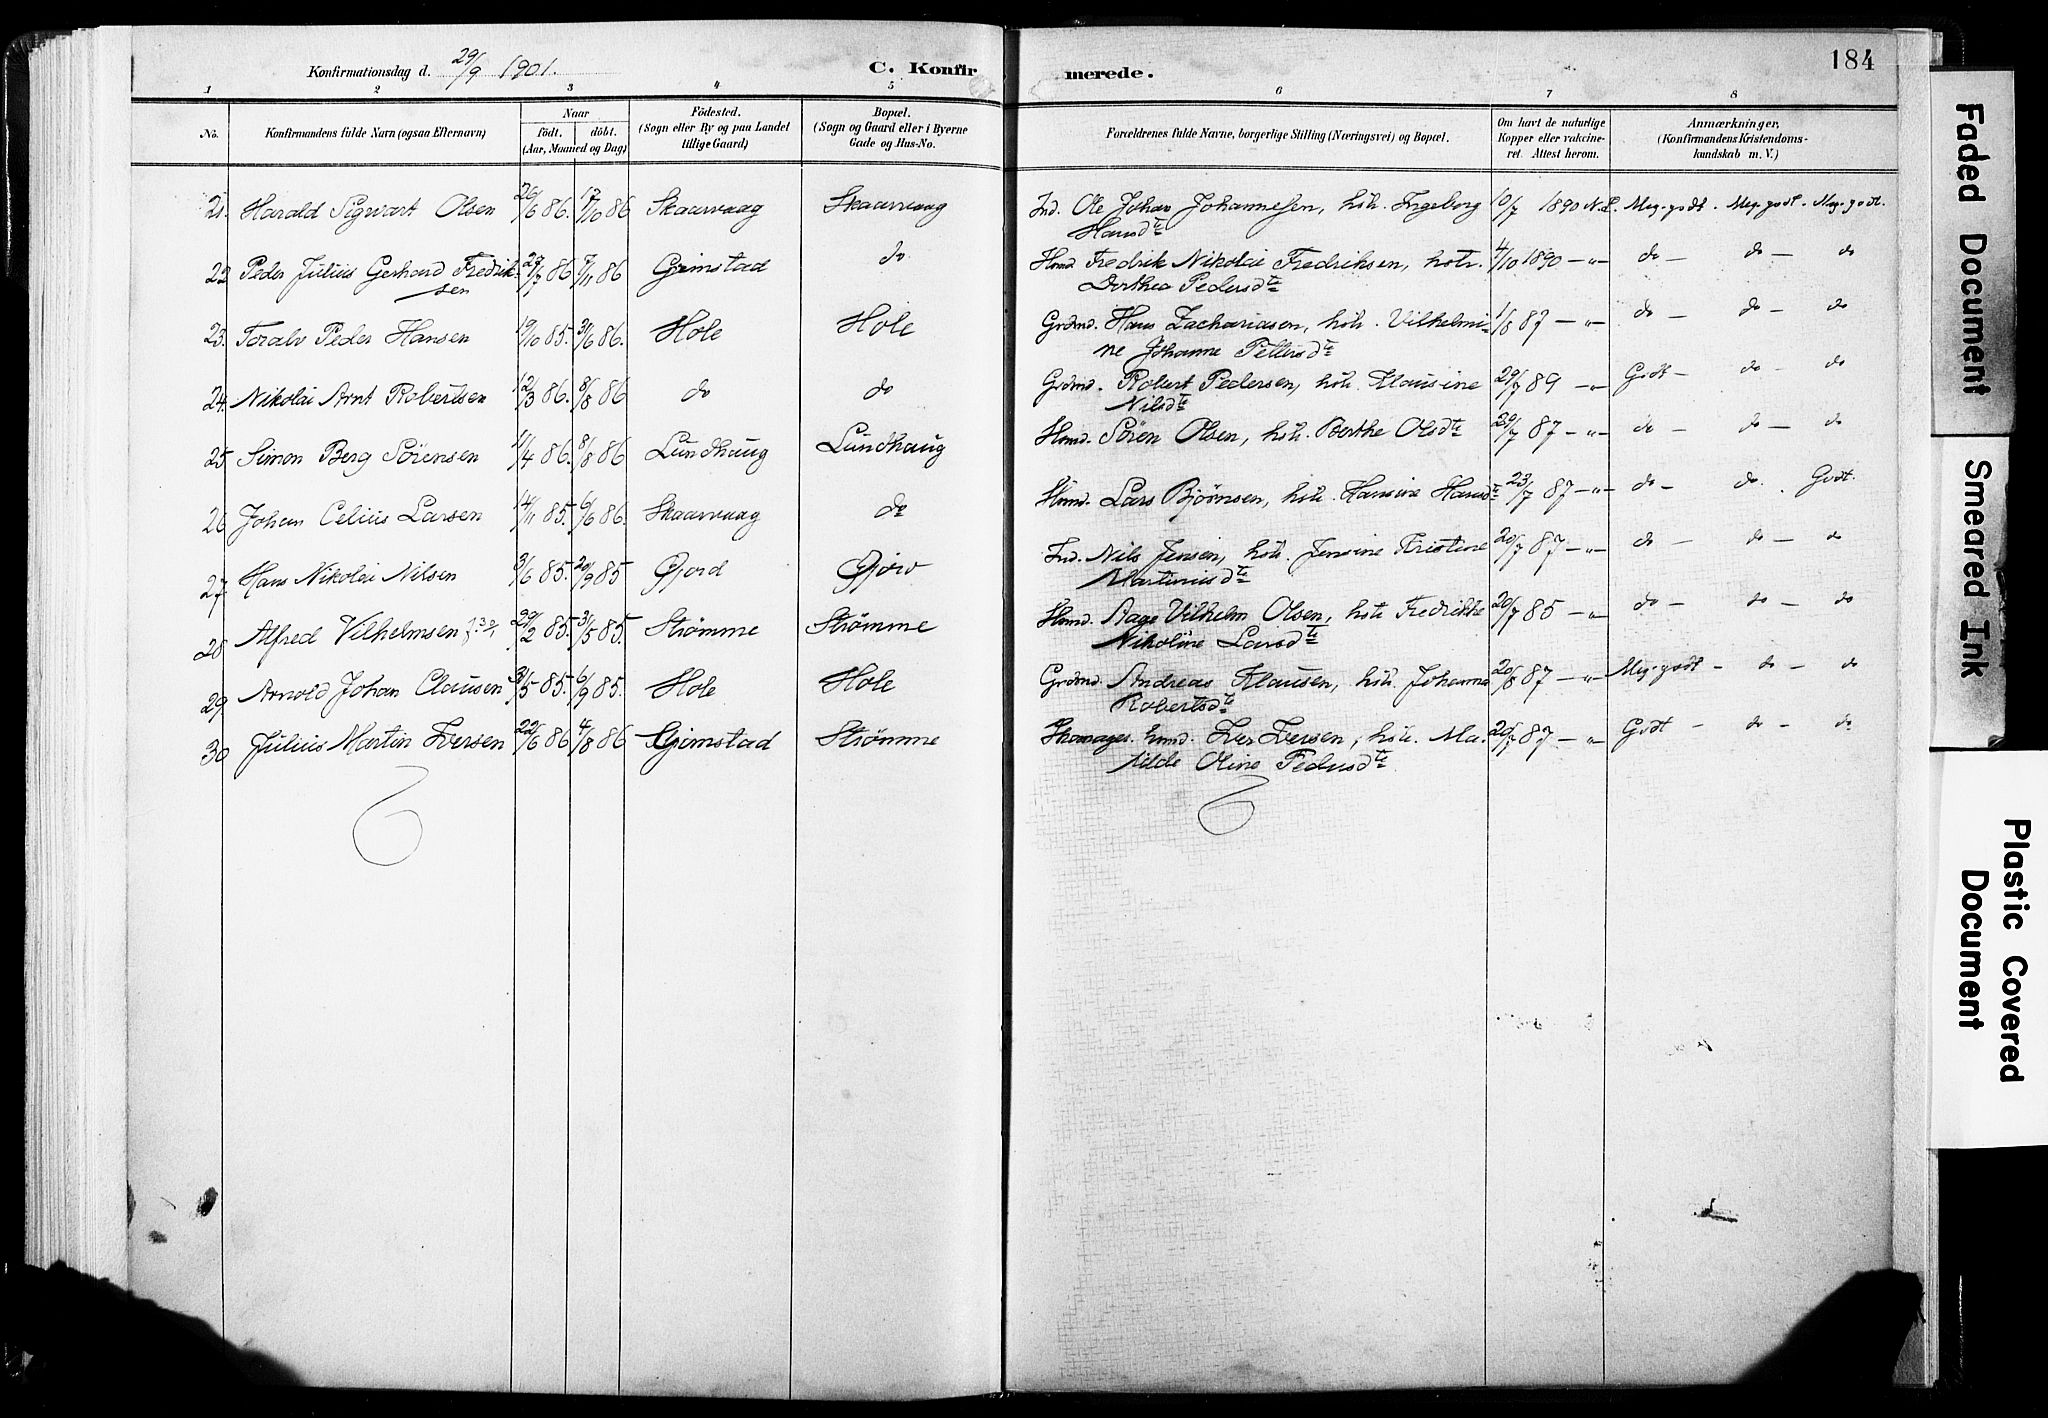 Konfirmationsdag d. 29/9 1901.
C. Konfirmerede.
184
1 2 3 4 5 6 7 8
No.
Konfirmandens fulde Navn (ogsaa Efternavn)
Naar
født. døbt.
(Aar, Maaned og Dag)
Födested.
(Sogn eller By og paa Landet
tillige Gaard)
Bopæl.
(Sogn og Gaard eller i Byerne
Gade og Hus-No.
Forældrenes fulde Navne, borgerlige Stilling (Næringsvei) og Bopæl.
Om havt de naturlige
Kopper eller vakcine-
ret. Attest herom.
Anmærkninger,
(Konfirmandens Kristendoms-
kundskab m. V.)
21. Harald Sigvart Olsen 26/6 86. 17/10 86 Skaarvaag Skaarvaag Ind. Ole Johan Johannesen, hstr. Ingeborg 10/7 1890 N.L. Meg. godt. Meg. godt. Meg. godt.
Hansdtr
22 Peder Julius Gerhard Fredrik- 27/7 86 7/11 86 Grimstad do Hmd Fredrik Nikolai Fredriksen, hstr. 4/10 1890 — „ — do — do — do
sen Dorthea Pedersdtr
23. Toralv Peder Hansen 19/10 85. 31/6 86. Hole Hole Grdmd. Hans Zachariasen, hstr. Vilhelmi- 1/8 87 — „ — do — do — do
ne Johanne Pettersdtr
24. Nikolai Arnt Robertsen 12/3 86. 8/8 86 do do Grdmd. Robert Pedersen, hstr. Klausine 29/7 89 — „ — Godt — do — do
Nilsdtr
25 Simon Berg Sörensen 11/4 86. 8/8 86 Lundhaug Lundhaug Hmd. Sören Olsen, hstr. Berthe Olsdtr 29/7 87 — „ — do — do — do
26 Johan Celius Larsen 14/11 85. 6/6 86. Skaarvaag do Hmd. Lars Bjørnsen, hstr. Hansine Hansdtr 23/7 87 — „ — do — do. Godt.
27. Hans Nikolai Nilsen 3/6 85. 20/9 85 Gjord Gjord Ind. Nils Jensen, hstr. Jensine Kristine 20/7 87 — „ — do — do — do
Martinusdtr
28 Alfred Vilhelmsen 27/2 85. 31/5 85. Strømme Strømme Hmd. Aage Vilhelm Olsen, hstr Fredrikke 20/7 85 — „ — do — do — do
Nikoline Larsdtr
29. Arnold Johan Clausen 31/5 85. 6/9 85. Hole Hole Grdmd. Andreas Klausen, hstr. Johanna 20/8 87 — „ — Meg. godt — do — do
Robertsdtr
30 Julius Martin Iversen 22/6 86 4/8 86 Grimstad Strømme Skomager. hmd. Iver Iversen, hstr. Ma- 20/7 87 — „ Godt — do — do
tilde Oline Pedersdtr
Faded Document
Smeared Ink
Plastic Covered
Document